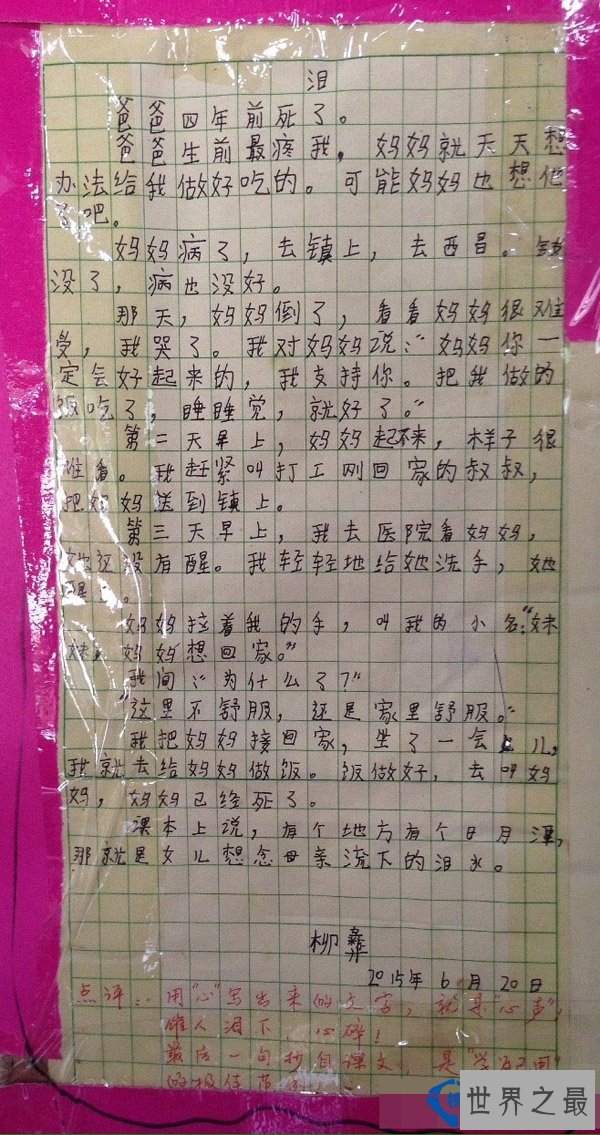 泪
爸爸四年前死了。
爸爸生前最疼我，妈妈就天天想
办法给我做好吃的。可能妈妈也想他
了吧。
妈妈病了，去镇上，去西昌。钱
没了，病也没好。
那天，妈妈倒了，看看妈妈很难
受，我哭了。我对妈妈说：“妈妈你一
定会好起来的，我支持你。把我做的
饭吃了，睡睡觉，就好了。”
第二天早上，妈妈起不来，样子很
难看。我赶紧叫打工刚回家的叔叔，
把妈妈送到镇上。
第三天早上，我去医院看妈妈，
她还没有醒。我轻轻地给她洗手，她
醒了。
妈妈拉着我的手，叫我的小名：“妹
妹，妈妈想回家。”
我问：“为什么了？”
“这里不舒服，还是家里舒服。”
我把妈妈接回家，坐了一会儿，
我就去给妈妈做饭。饭做好，去叫妈
妈，妈妈已经死了。
课本上说，有个地方有个日月潭，
那就是女儿想念母亲流下的泪水。
柳彝
2015年6月20日
点评：用“心”写出来的文字，就是“心声”，
催人泪下，心碎！
最后一句抄自课文，是“学以用”
的极佳范例
世界之最